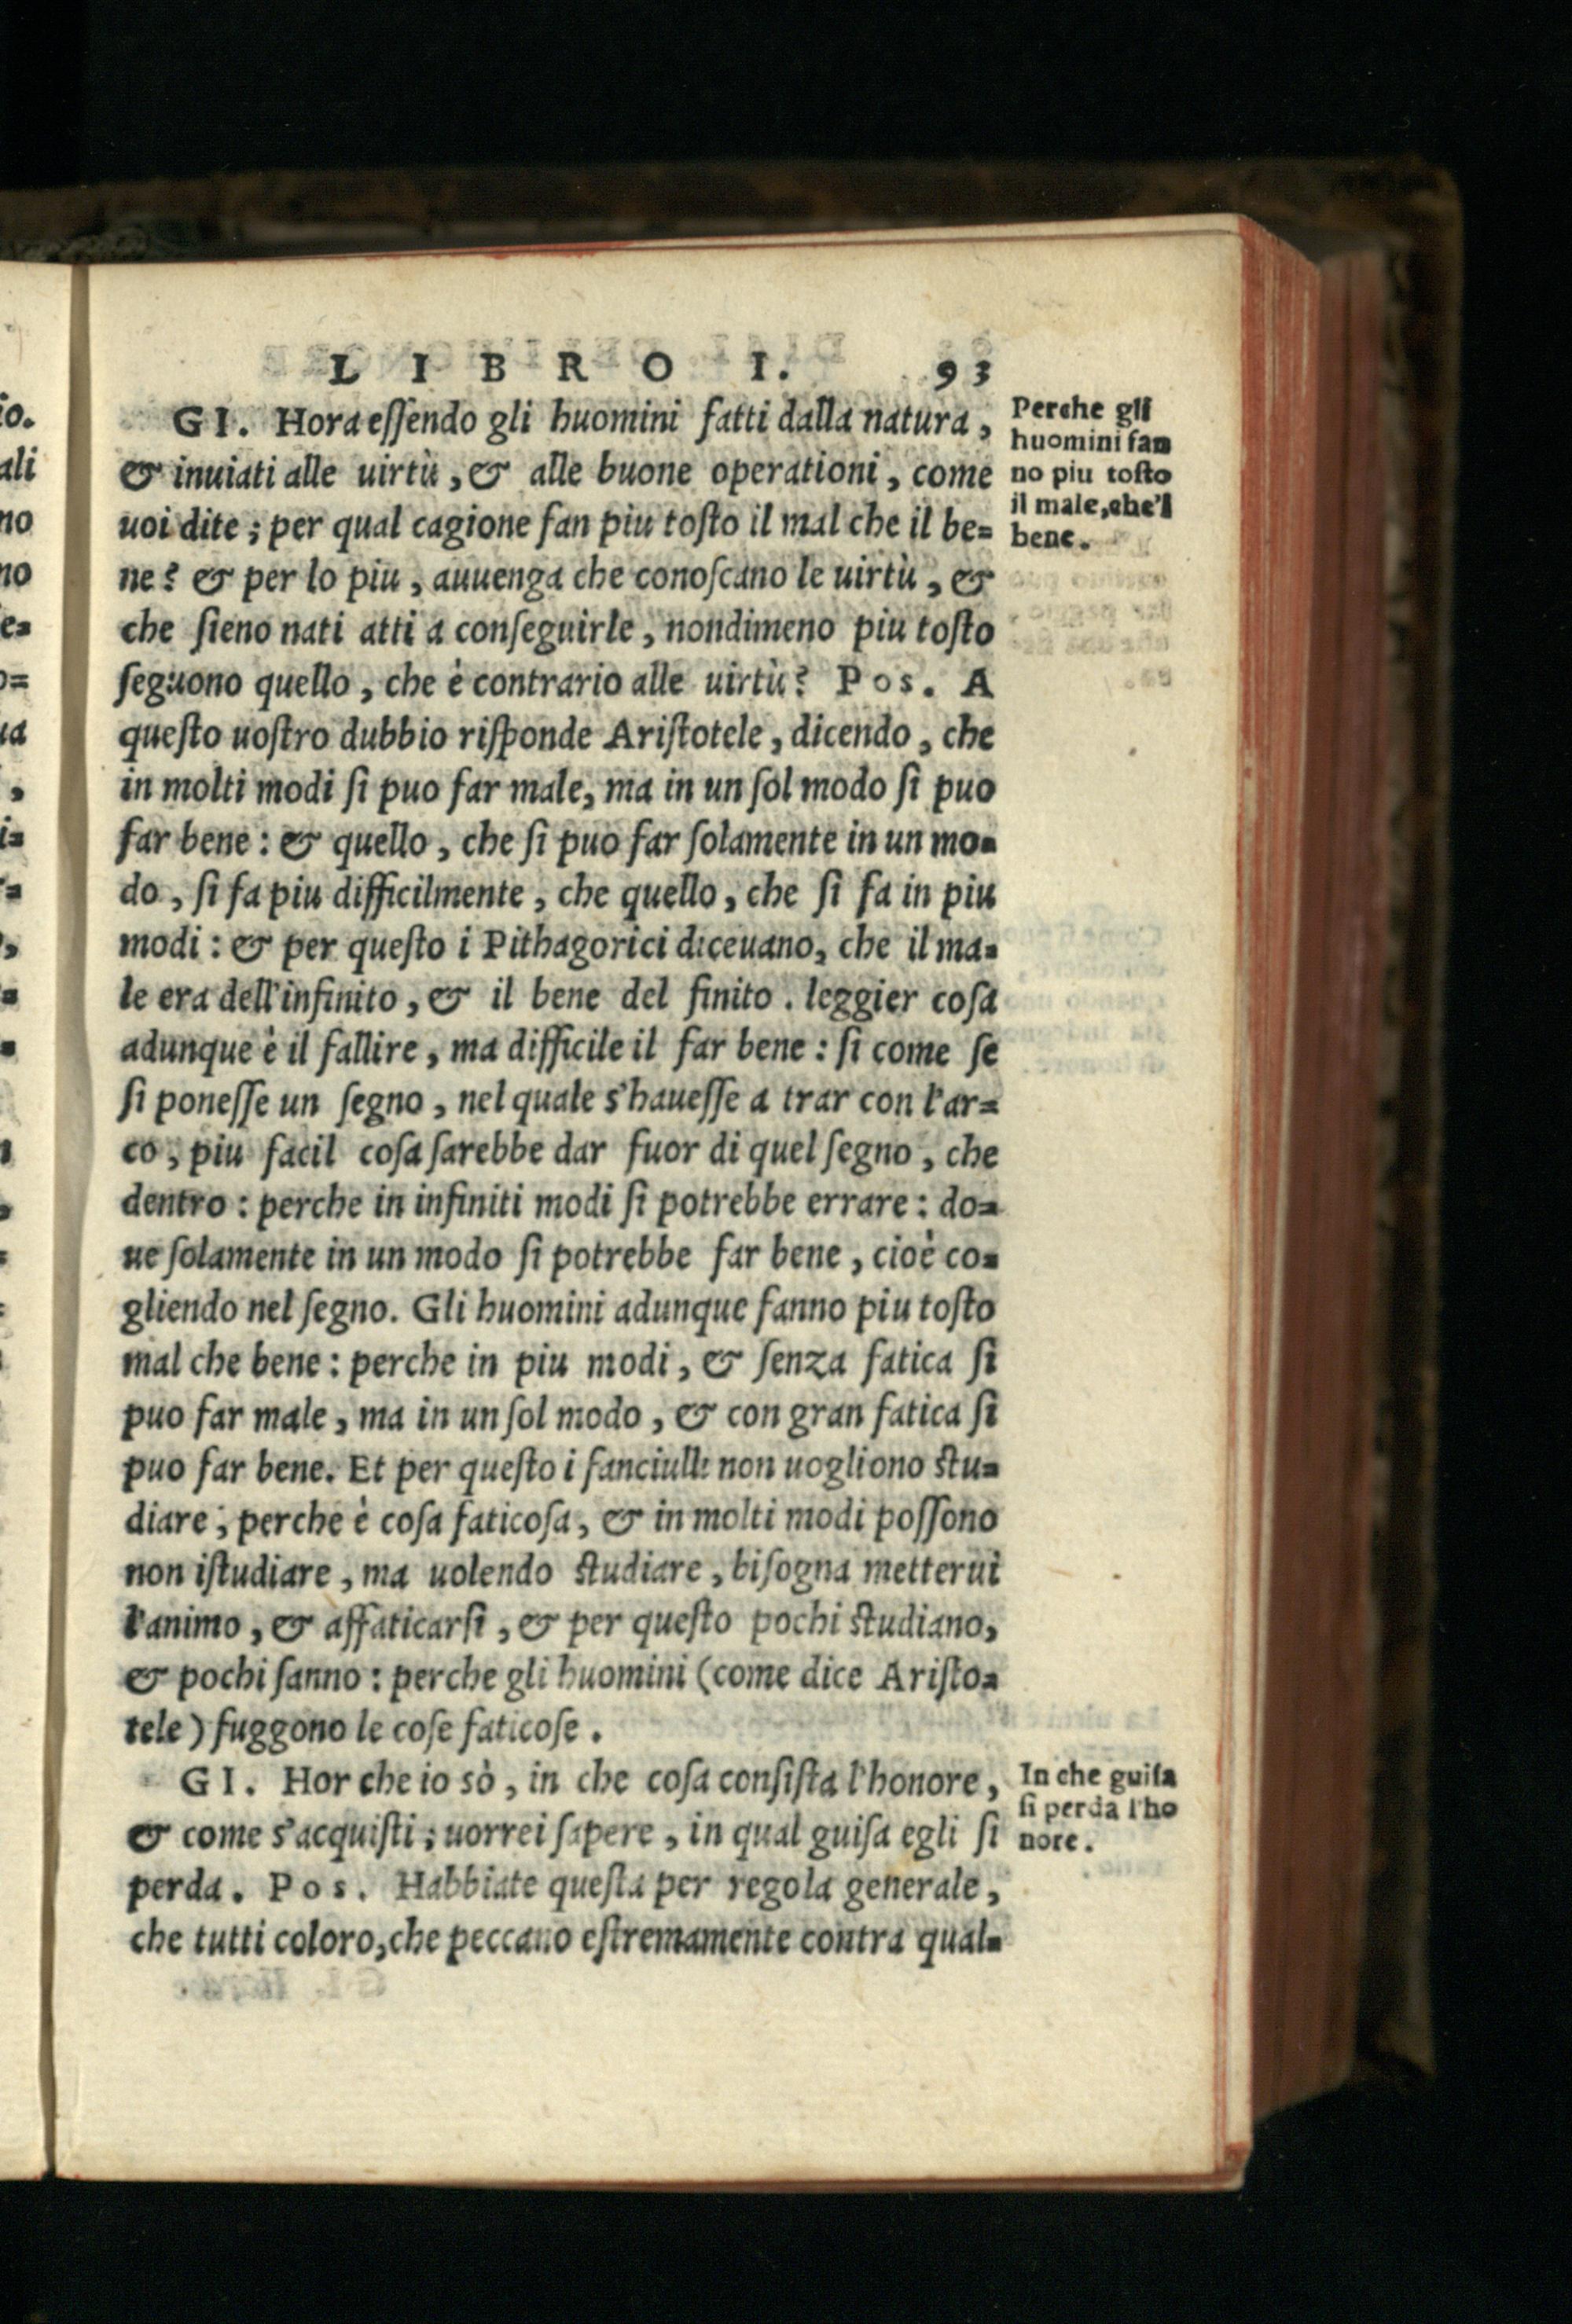 LIBRO I. 93
GI. Hora eſſendo gli huomini fatti dalla natura,
& inuiati alle uirtù, & alle buone operationi, come
uoi dite; per qual cagione fan piu toſto il mal che il be=
ne? & per lo piu, auuenga che conoſcano le uirtù, &
che ſieno nati atti a conſeguirle, nondimeno piu toſto
ſeguono quello, che è contrario alle uirtù? Pos. A
queſto uoſtro dubbio riſponde Ariſtotele, dicendo, che
in molti modi ſi puo far male, ma in un ſol modo ſi puo
far bene: & quello, che ſi puo far ſolamente in un mo=
do, ſi fa piu difficilmente, che quello, che ſi fa in piu
modi: & per queſto i Pithagorici diceuano, che il ma=
le era dell'infinito, & il bene del finito. leggier coſa
adunque è il fallire, ma difficile il far bene: ſi come ſe
ſi poneſſe un ſegno, nel quale s'haueſſe a trar con l'ar=
co, piu facil coſa ſarebbe dar fuor di quel ſegno, che
dentro: perche in infiniti modi ſi potrebbe errare: do=
ue ſolamente in un modo ſi potrebbe far bene, cioè co=
gliendo nel ſegno. Gli huomini adunque fanno piu toſto
mal che bene: perche in piu modi, & ſenza fatica ſi
puo far male, ma in un ſol modo, & con gran fatica ſi
puo far bene. Et per queſto i fanciulli non uogliono ſtu=
diare; perche è coſa faticoſa, & in molti modi poſſono
non iſtudiare, ma uolendo ſtudiare, biſogna metterui
l'animo, & affaticarſi, & per queſto pochi ſtudiano,
& pochi ſanno: perche gli huomini (come dice Ariſto=
tele) fuggono le coſe faticoſe.
GI. Hor che io sò, in che coſa conſiſta l'honore,
& come s'acquiſti; uorrei ſapere, in qual guiſa egli ſi
perda. Pos. Habbiate queſta per regola generale,
che tutti coloro, che peccano eſtremamente contra qual=
Perche gli
huomini fan
no piu toſto
il male, che'l
bene.
In che guiſa
ſi perda l'ho
nore.